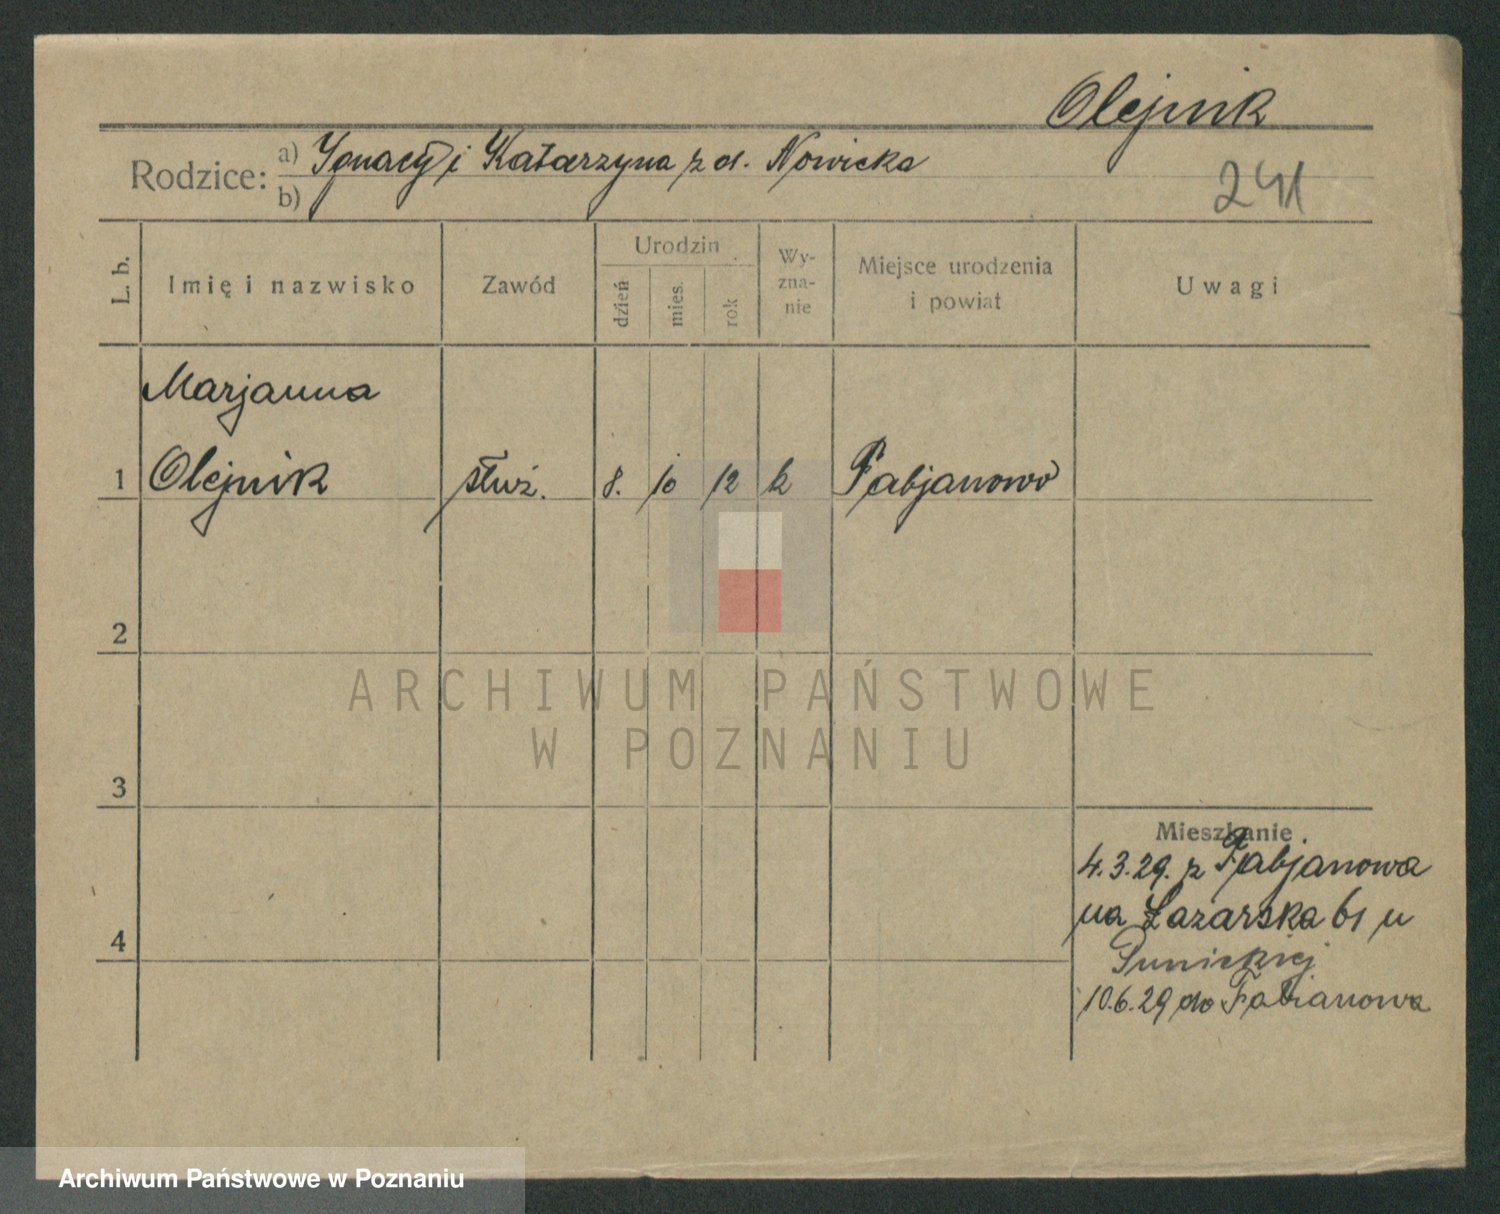 Olejnik
Rodzice: a) Ignacy i Katarzyna z d. Nowicka
b)
241
L. b.
Imię i nazwisko
Zawód
Urodzin
dzień
mies.
rok
Wy-
zna-
nie
Miejsce urodzenia
i powiat
Uwagi
Marjanna
1 Olejnik służ. 8. 10 12 k Fabjanowo
2
3
4
Mieszkanie
4.3.29. z Fabjanowa
na Łazarska 61 u
10.6.29 do Fabianowa
ARCHIWUM PAŃSTWOWE
W POZNANIU
Archiwum Państwowe w Poznaniu